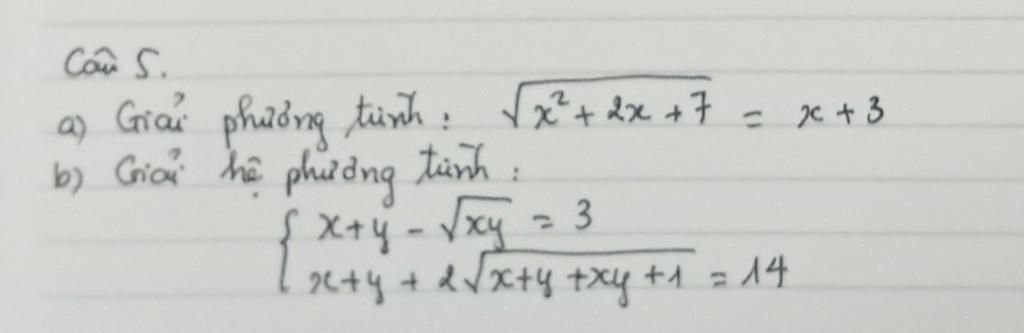 Câu 5.
a) Giải phương trình : √(x² + 2x + 7) = x + 3
b) Giải hệ phương trình :
{ x + y - √(xy) = 3
x + y + 2√(x + y + xy + 1) = 14